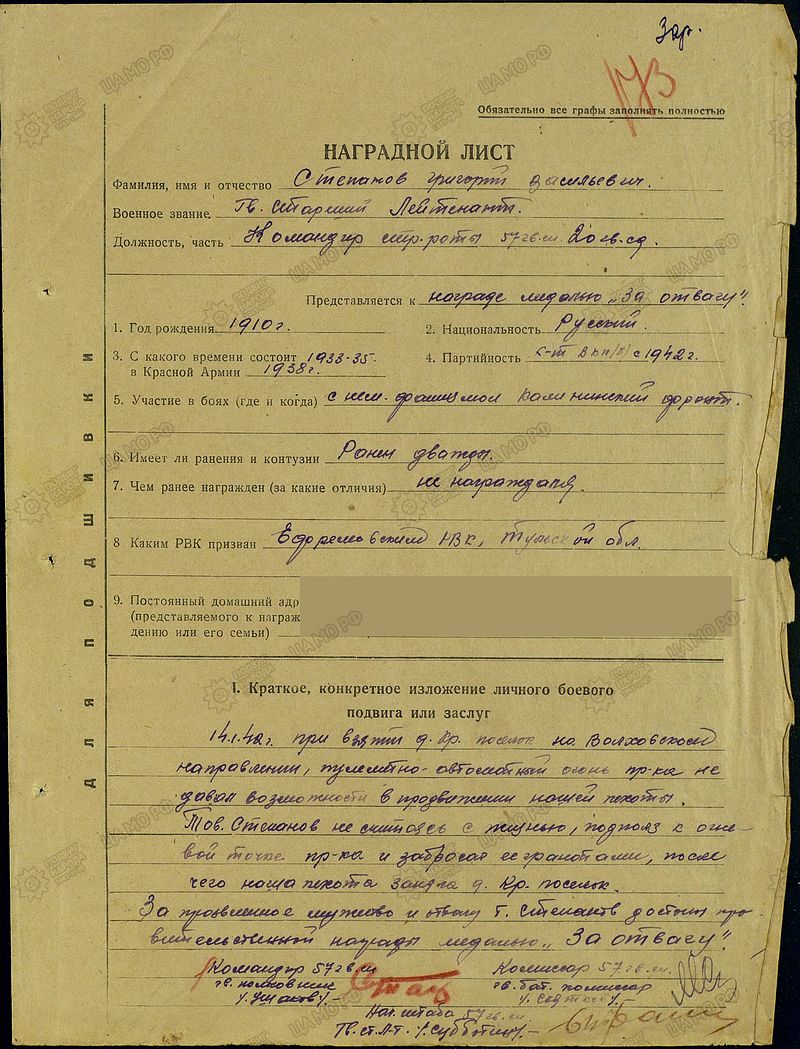 Зар.
173
Обязательно все графы заполнять полностью
НАГРАДНОЙ ЛИСТ
Фамилия, имя и отчество Степанов Григорий Васильевич.
Военное звание, Гв. Старший Лейтенант.
Должность, часть Командир стр. роты 57 гв. сп 20 гв. сд.
Представляется к награде медалью „За отвагу".
1. Год рождения 1910 г. 2. Национальность Русский.
3. С какого времени состоит 1933-35. 4. Партийность к-т ВКП/б/ с 1942 г.
в Красной Армии 1938 г.
5. Участие в боях (где и когда) с нем. фашизмом Калининский фронт.
6. Имеет ли ранения и контузии Ранен дважды.
7. Чем ранее награжден (за какие отличия) не награждался.
8 Каким РВК призван Ефремовским РВК, Тульской обл.
9. Постоянный домашний адр
(представляемого к награж
дению или его семьи)
I. Краткое, конкретное изложение личного боевого
подвига или заслуг
14.1.42 г. при взятии д. Кр. поселок на Волховском
направлении, пулеметно-автоматный огонь пр-ка не
давал возможности в продвижении нашей пехоты.
Тов. Степанов не считаясь с жизнью, подполз к огне-
вой точке пр-ка и забросал ее гранатами, после
чего наша пехота заняла д. Кр. поселок.
За проявленное мужество и отвагу т. Степанов достоин пра-
вительственной награды медалью „За отвагу".
Командир 57 гв. сп Комиссар 57 гв. сп.
гв. полковник гв. бат. комиссар
/. Ушаков/.-
Нач. штаба 57 гв. сп
Гв. ст. л-т. /. Субботин/.-
ДЛЯ ПОДШИВКИ
ЦАМО РФ
ПОДВИГ НАРОДА